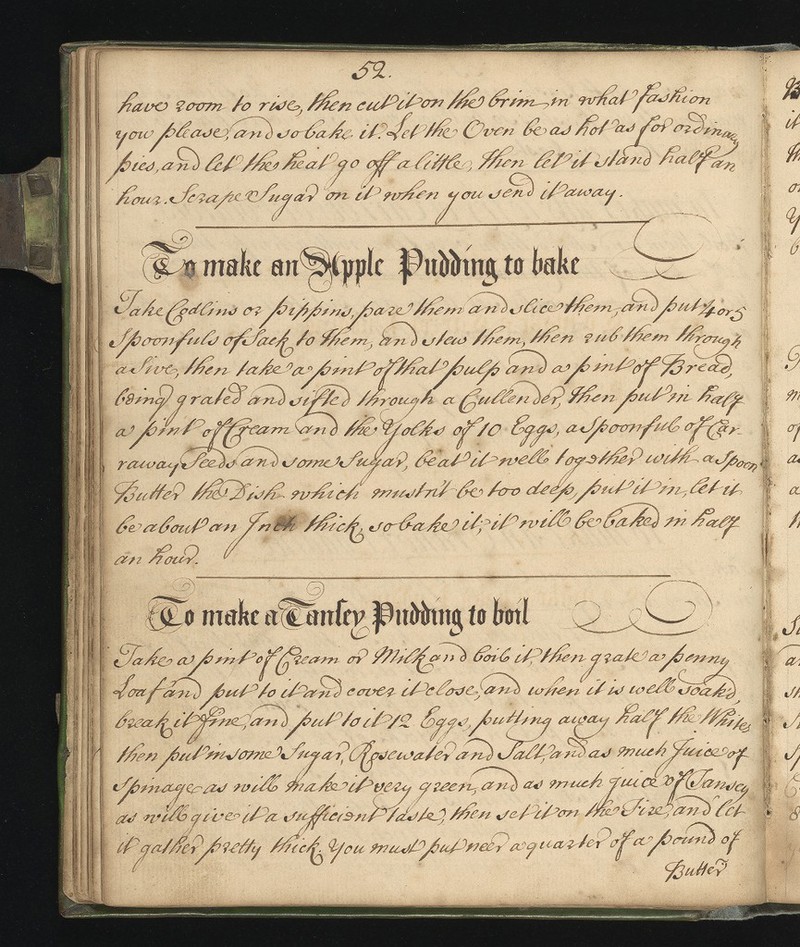 52.
have room to rise, then cut it on the brim in what fashion
you please, and so bake it. Let the Oven be as hot as for ordinary
pies, and let the heat go off a little, then let it stand half an
hour. Scrape Sugar on it when you send it away.
To make an Apple Pudding to bake
Take Codlins or pippins, pare them and slice them, and put 4 or 5
Spoonfuls of Sack to them, and stew them, then rub them through
a Sive, then take a pint of that pulp and a pint of Bread,
being grated and sifted through a Cullender, then put in half
a pint of Cream and the Yolks of 10 Eggs, a Spoonful of Car-
raway Seeds and some Sugar, beat it well together with a Spoon
Butter the Dish which mustn't be too deep, put it in, let it
be about an Inch thick, so bake it; it will be baked in half
an hour.
To make a Tansey Pudding to boil
Take a pint of Cream or Milk and boil it, then grate a penny
Loaf and put to it and cover it close, and when it is well soak'd,
break it fine, and put to it 12 Eggs, putting away half the Whites
then put in some Sugar, Rosewater and Salt, and as much Juice of
Spinage as will make it very green, and as much juice of Tansey
as will give it a sufficient taste, then set it on the Fire, and let
it gather pretty thick. You must put neer a quarter of a pound of
Butter